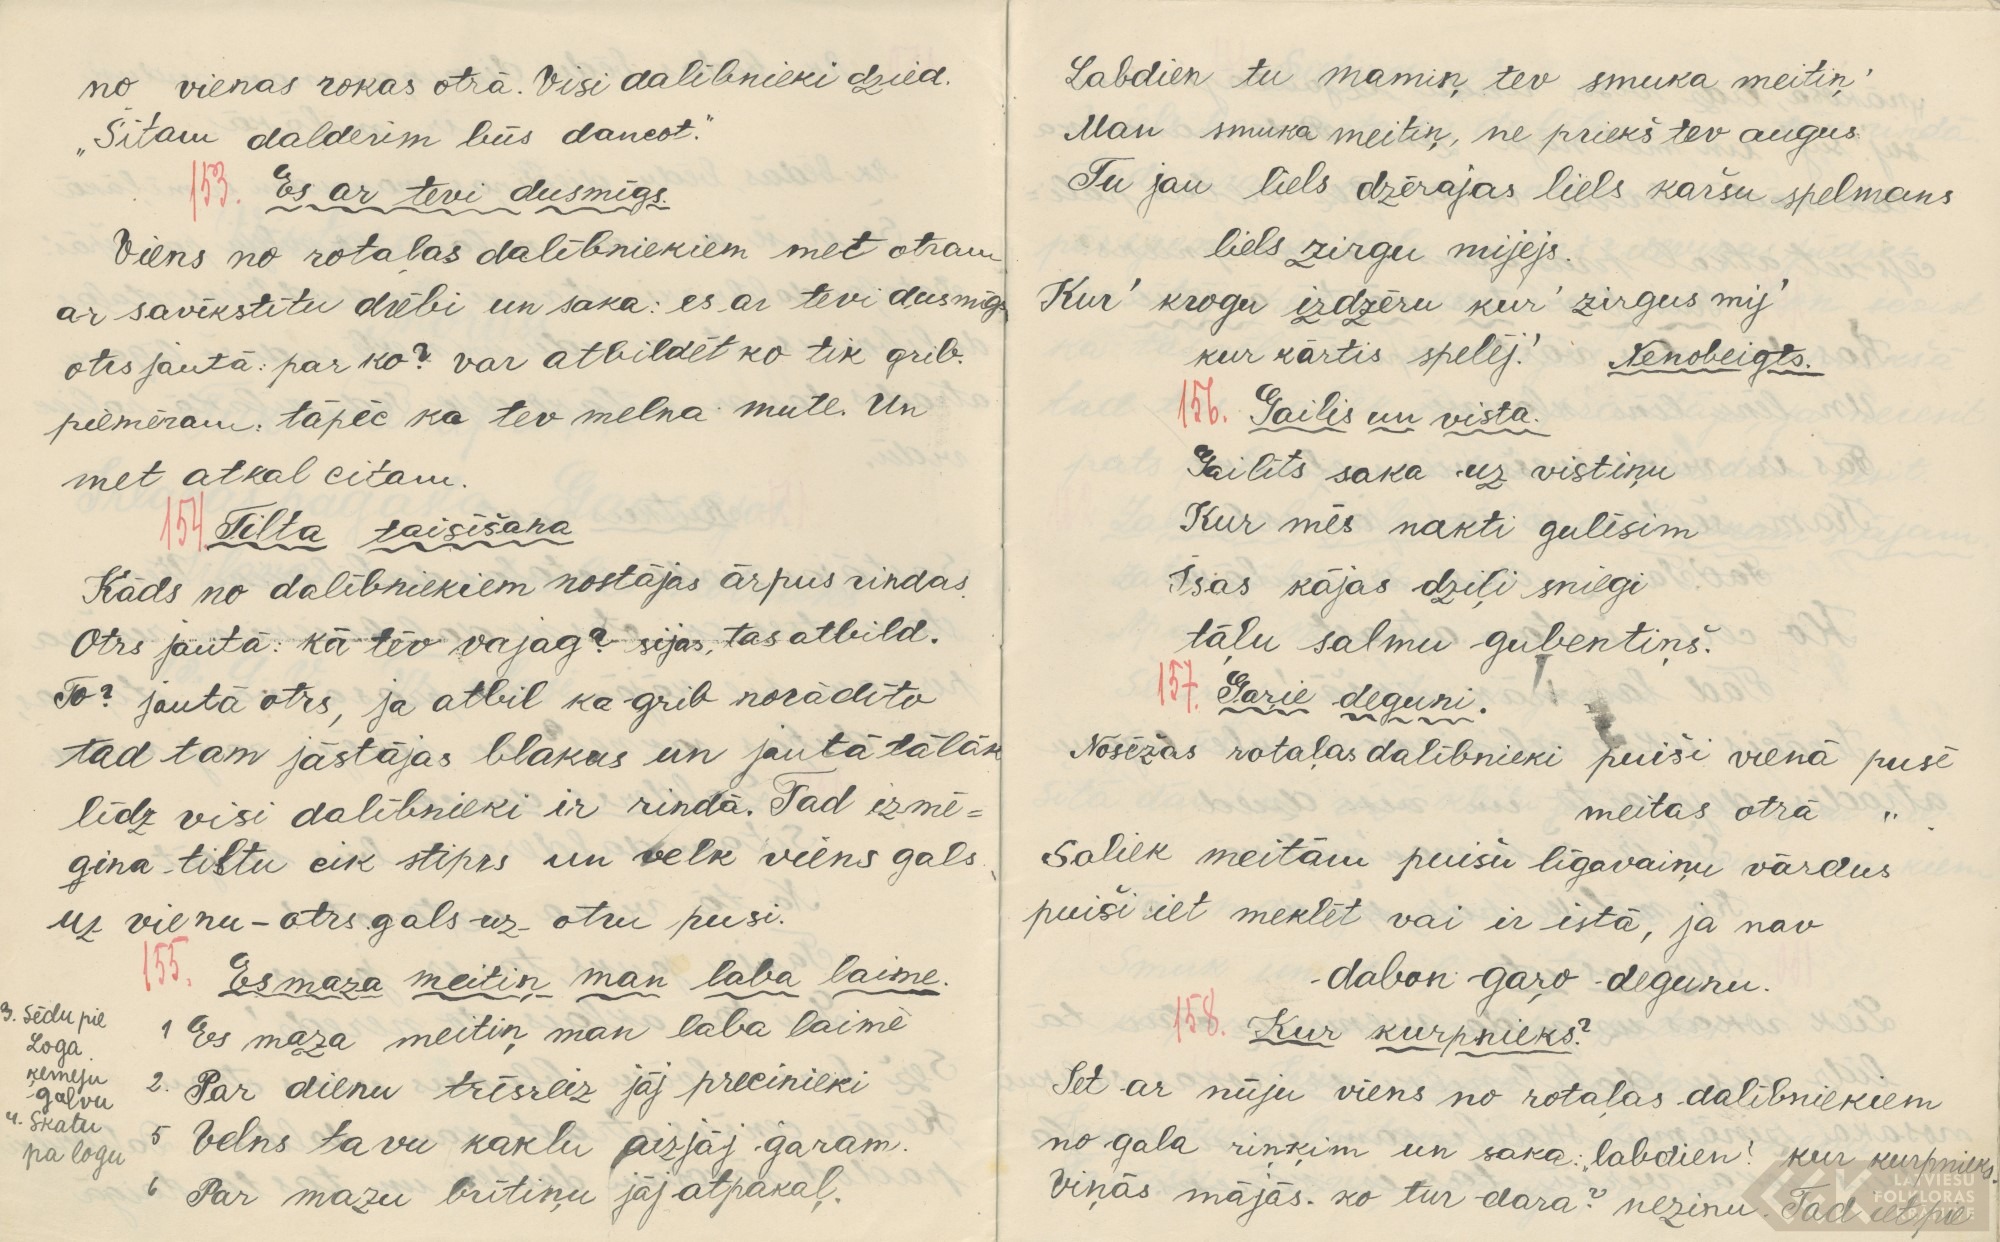 no vienas rokas otrā. Visi dalībnieki dzied.
„Šitam dalderim būs dancot."
153. Es ar tevi dusmīgs.
Viens no rotaļas dalībniekiem met otram
ar savīkstītu drēbi un saka: es ar tevi dusmīgs
otrs jautā: par ko? var atbildēt ko tik grib.
piemēram: tāpēc ka tev melna mute. Un
met atkal citam.
154 Tilta taisīšana
Kāds no dalībniekiem nostājas ārpus rindas.
Otrs jautā: kā tev vajag? sijas, tas atbild.
To? jautā otrs, ja atbil ka grib norādīto
tad tam jāstājas blakus un jautā tālāk
līdz visi dalībnieki ir rindā. Tad izmē=
gina tiltu cik stiprs un velk viens gals
uz vienu – otrs gals uz otru pusi.
155. Es maza meitiņ man laba laime.
1 Es maza meitiņ man laba laime
2. Par dienu trīsreiz jāj precinieki
3. Sēdu pie
Loga
ķemeju
galvu
4. Skatu
pa logu
5 Velns tavu kaklu aizjāj garam.
6 Par mazu brītiņu jāj atpakaļ.
Labdien tu mamiņ, tev smuka meitiņ'
Man smuka meitiņ, ne priekš tev augus
Tu jau liels dzērajas liels karšu spelmans
liels zirgu mijejs.
Kur' krogu izdzēru kur' zirgus mij'
kur kārtis spelēj.' Nenobeigts.
156. Gailis un vista.
Gailīts saka uz vistiņu
Kur mēs nakti gulēsim
Īsas kājas dziļi sniegi
tāļu salmu gubentiņš.
157. Gaŗie deguni.
Nosēžas rotaļas dalībnieki puiši vienā pusē
meitas otrā „
Saliek meitām puišu līgavaiņu vārdus
puiši iet meklēt vai ir istā, ja nav
dabon gaŗo degunu.
158. Kur kurpnieks?
Iet ar nūju viens no rotaļas dalībniekiem
no gala riņķim un saka: „labdien! kur kurpnieks.
Viņās mājās. ko tur dara? nezinu. Tad iet pie
LATVIEŠU
FOLKLORAS
KRĀTUVE